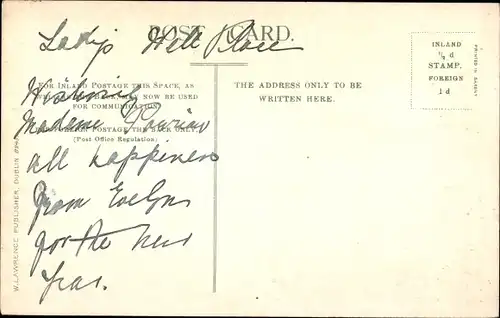 POST CARD.
Lady's Well Place
FOR INLAND POSTAGE THIS SPACE, AS
NOW BE USED
FOR COMMUNICATION
POSTAGE THE BACK ONLY
(Post Office Regulation)
Wishing
Madame
all happiness
from Evelyn
for the New
Year.
THE ADDRESS ONLY TO BE
WRITTEN HERE.
INLAND
½ d
STAMP.
FOREIGN
1 d
W. LAWRENCE, PUBLISHER, DUBLIN